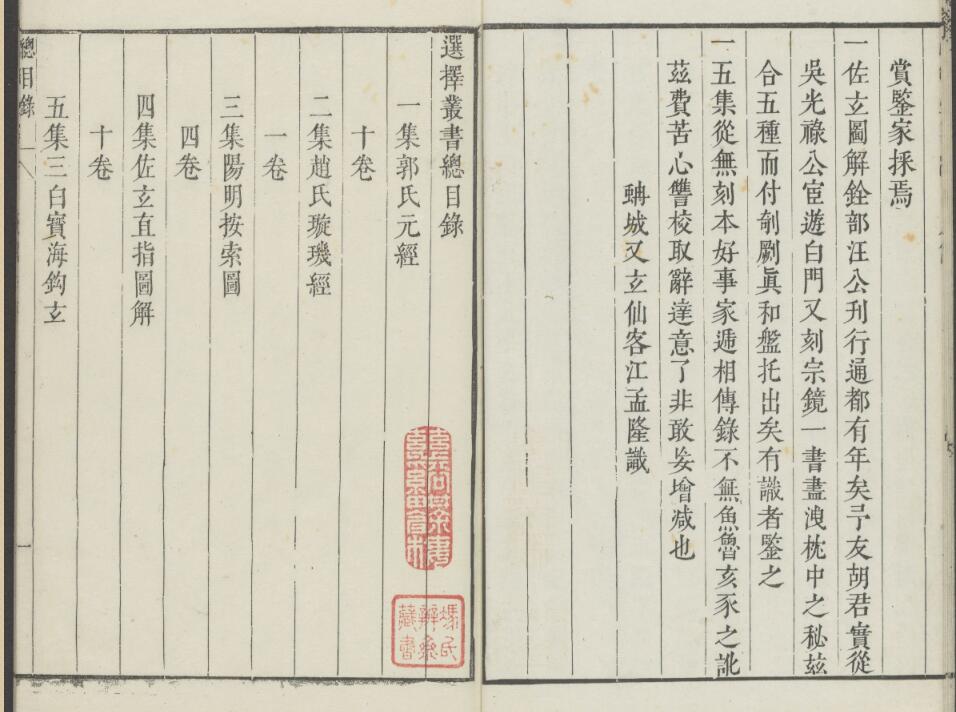 賞鑒家採焉
一佐玄圖解銓部汪公刋行通都有年矣予友胡君實從
吳光祿公宦遊白門又刻宗鏡一書盡洩枕中之秘兹
合五種而付剞劂眞和盤托出矣有識者鑒之
一五集從無刻本好事家遞相傳錄不無魚魯亥豕之訛
兹費苦心讐校取辭達意了非敢妄增减也
蚺城又玄仙客江孟隆識
選擇叢書總目錄
一集郭氏元經
十卷
二集趙氏璇璣經
一卷
三集陽明按索圖
四卷
四集佐玄直指圖解
十卷
五集三白寳海鈎玄
總目錄
一
藏書